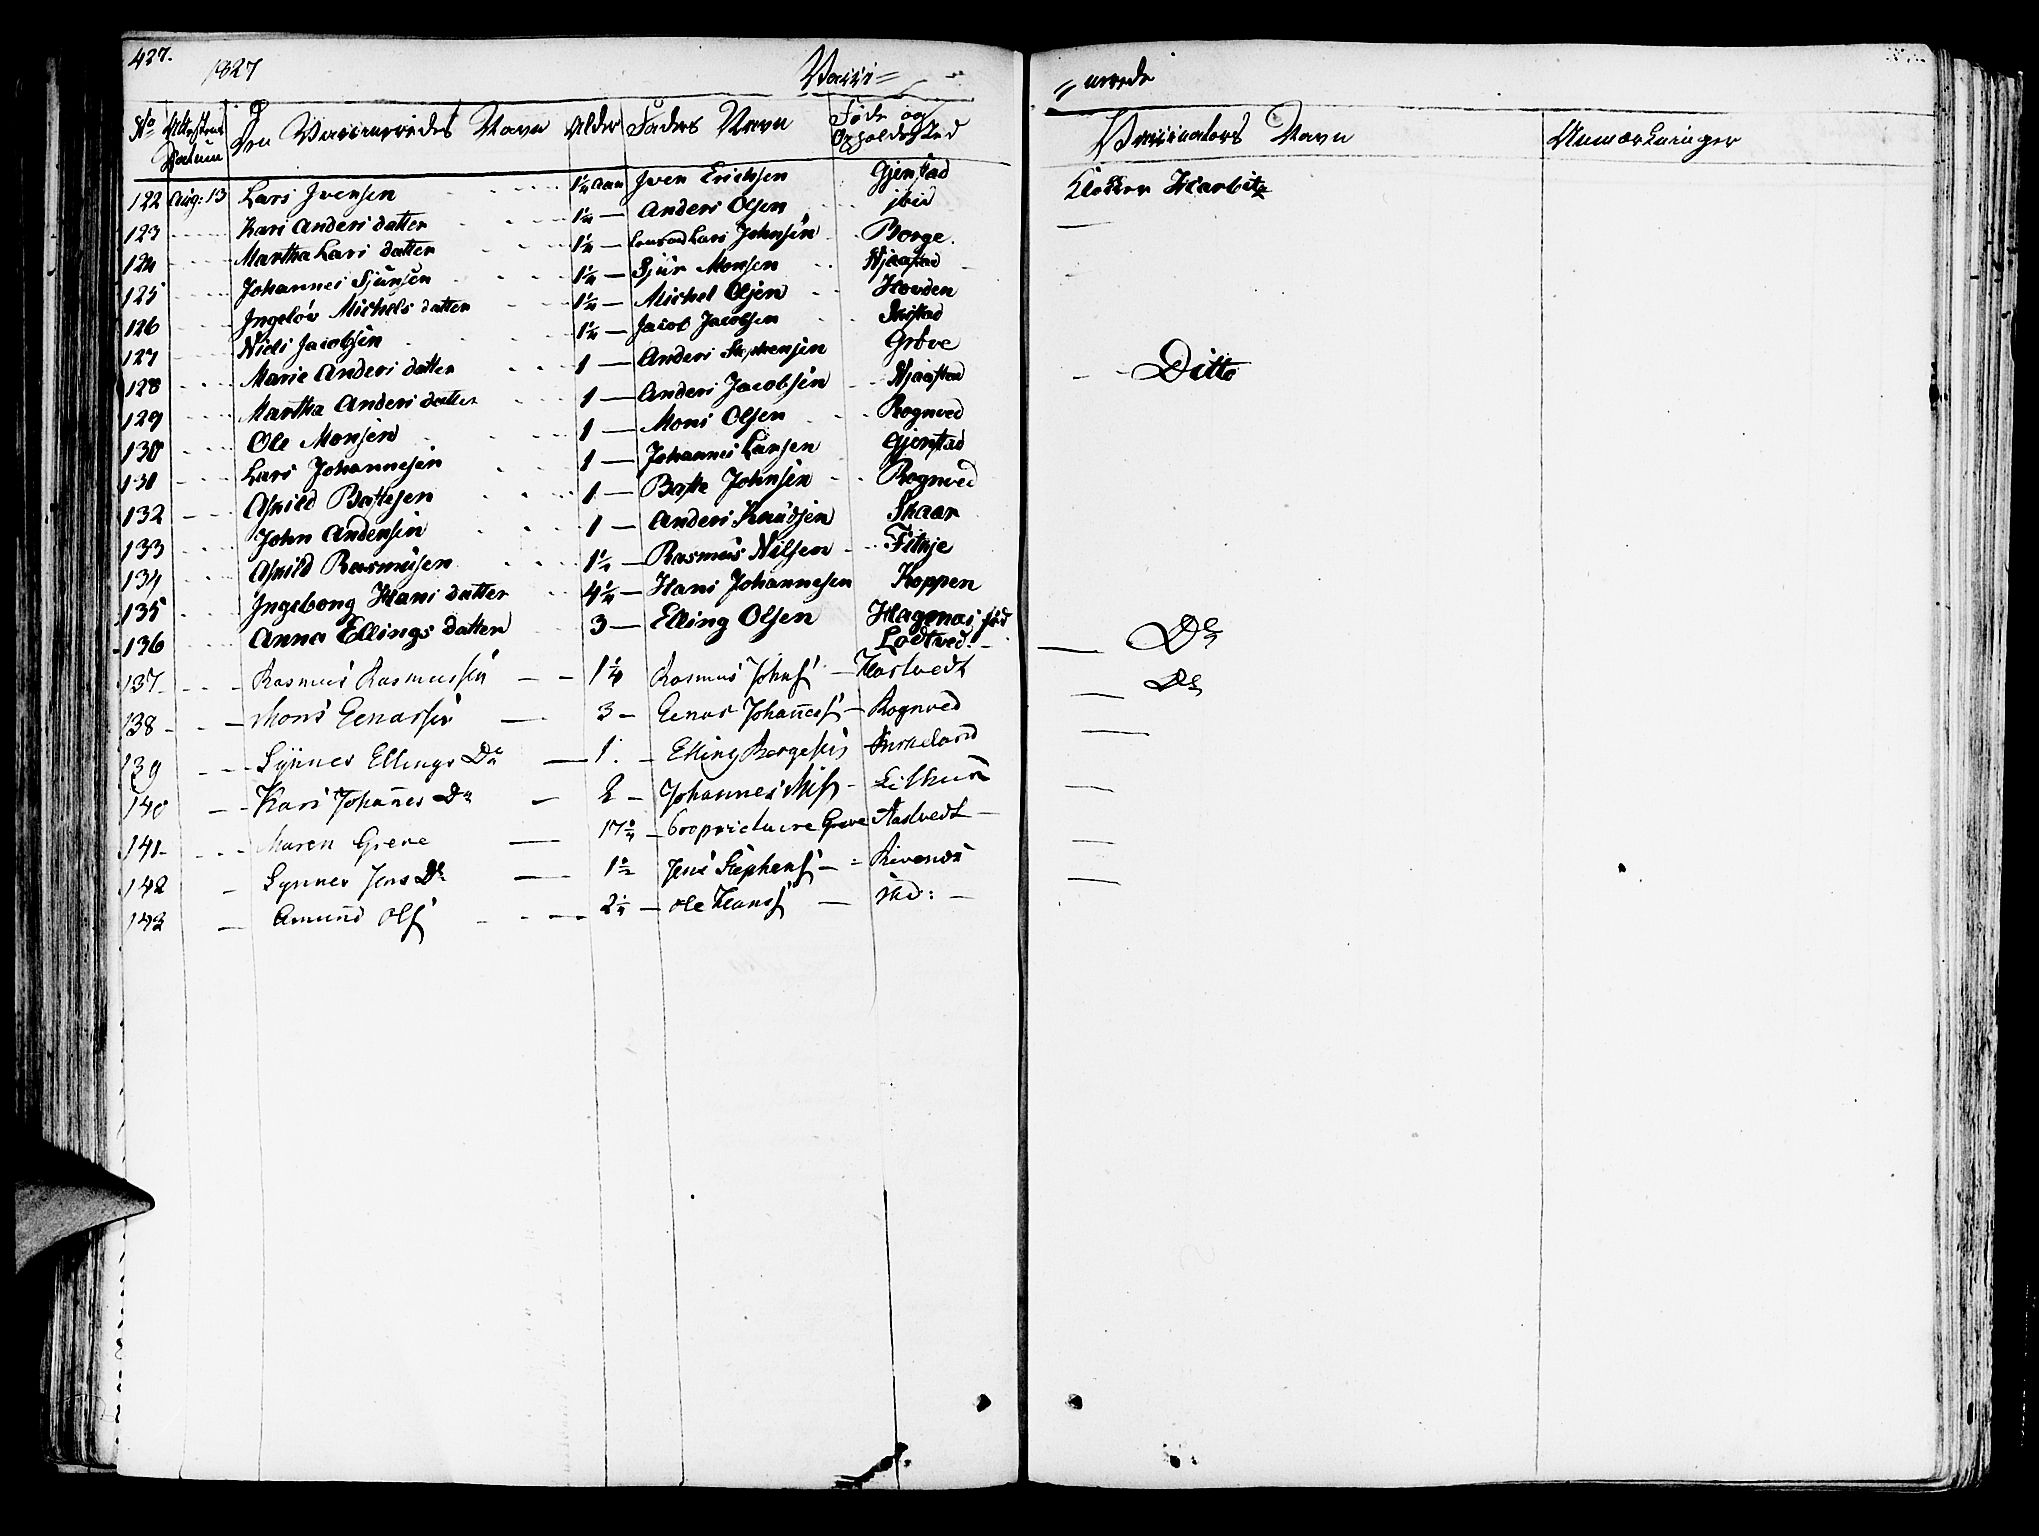 427.
1827
Vacci=
=nerede
No Attestens Datum Den Vaccineredes Navn Alder Faders Navn Føde og Opholdssted Vaccinators Navn Anmærkninger
122 Aug: 13 Lars Iversen 1½ Aar Iver Erichsen Gjerstad Klokker Harbitz
123 Kari Anders datter 1¼ — Anders Olsen ibid —
124 Martha Lars datter 1¼ — Lars Johnsen Borge.
125 Johannes Sjursen 1¼ — Sjur Monsen Njaastad
126 Ingeløv Michels datter 1¼ — Michel Olsen Hovden
127 Niels Jacobsen 1¼ — Jacob Jacobsen
128 Marie Anders datter 1 — Anders Stephensen Grøve — Ditto
129 Martha Anders datter 1 — Anders Jacobsen Njaastad
130 Ole Monsen 1 — Mons Olsen Rognved
131 Lars Johannesen 1 — Johannes Larsen Gjerstad
132 Askild Baftesen 1 — Bafte Johnsen Rognved
133 John Andersen 1 — Anders Knudsen Skaar
134 Askild Rasmusen 1½ — Rasmus Nilsen Fitkje
135 Ingeborg Hans datter 4¼ — Hans Johannesen Koppen
136 Anna Ellings datter 3 — Elling Olsen Hagenæs, fød Lodtved. — Do
137 Rasmus Rasmussen 1¼ Rasmus Johns. — Hartvedt — Do
138 Mons Eenarsen 3 — Eenar Johannes. — Rognved —
139 Synnes Ellings Dr 1. — Elling Børgesen Birkeland —
140 Kari Johannes Dr 2 — Johannes Nils. —
141 Maren Greve 17½ — Proprietaire Greve Aastvedt —
142 Synnes Jens Dr 1½ Jens Stephens. — Revende —
143 Amund Ols. 2¼ — Ole Hans. — ibd: —